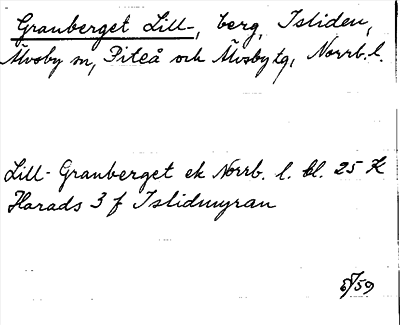 Granberget Lill-, berg, Isliden,
Älvsby sn, Piteå och Älvsby tg, Norrb. l.
Lill-Granberget ek Norrb. l. bl. 25 K
Harads 3 f Islidmyran
/59